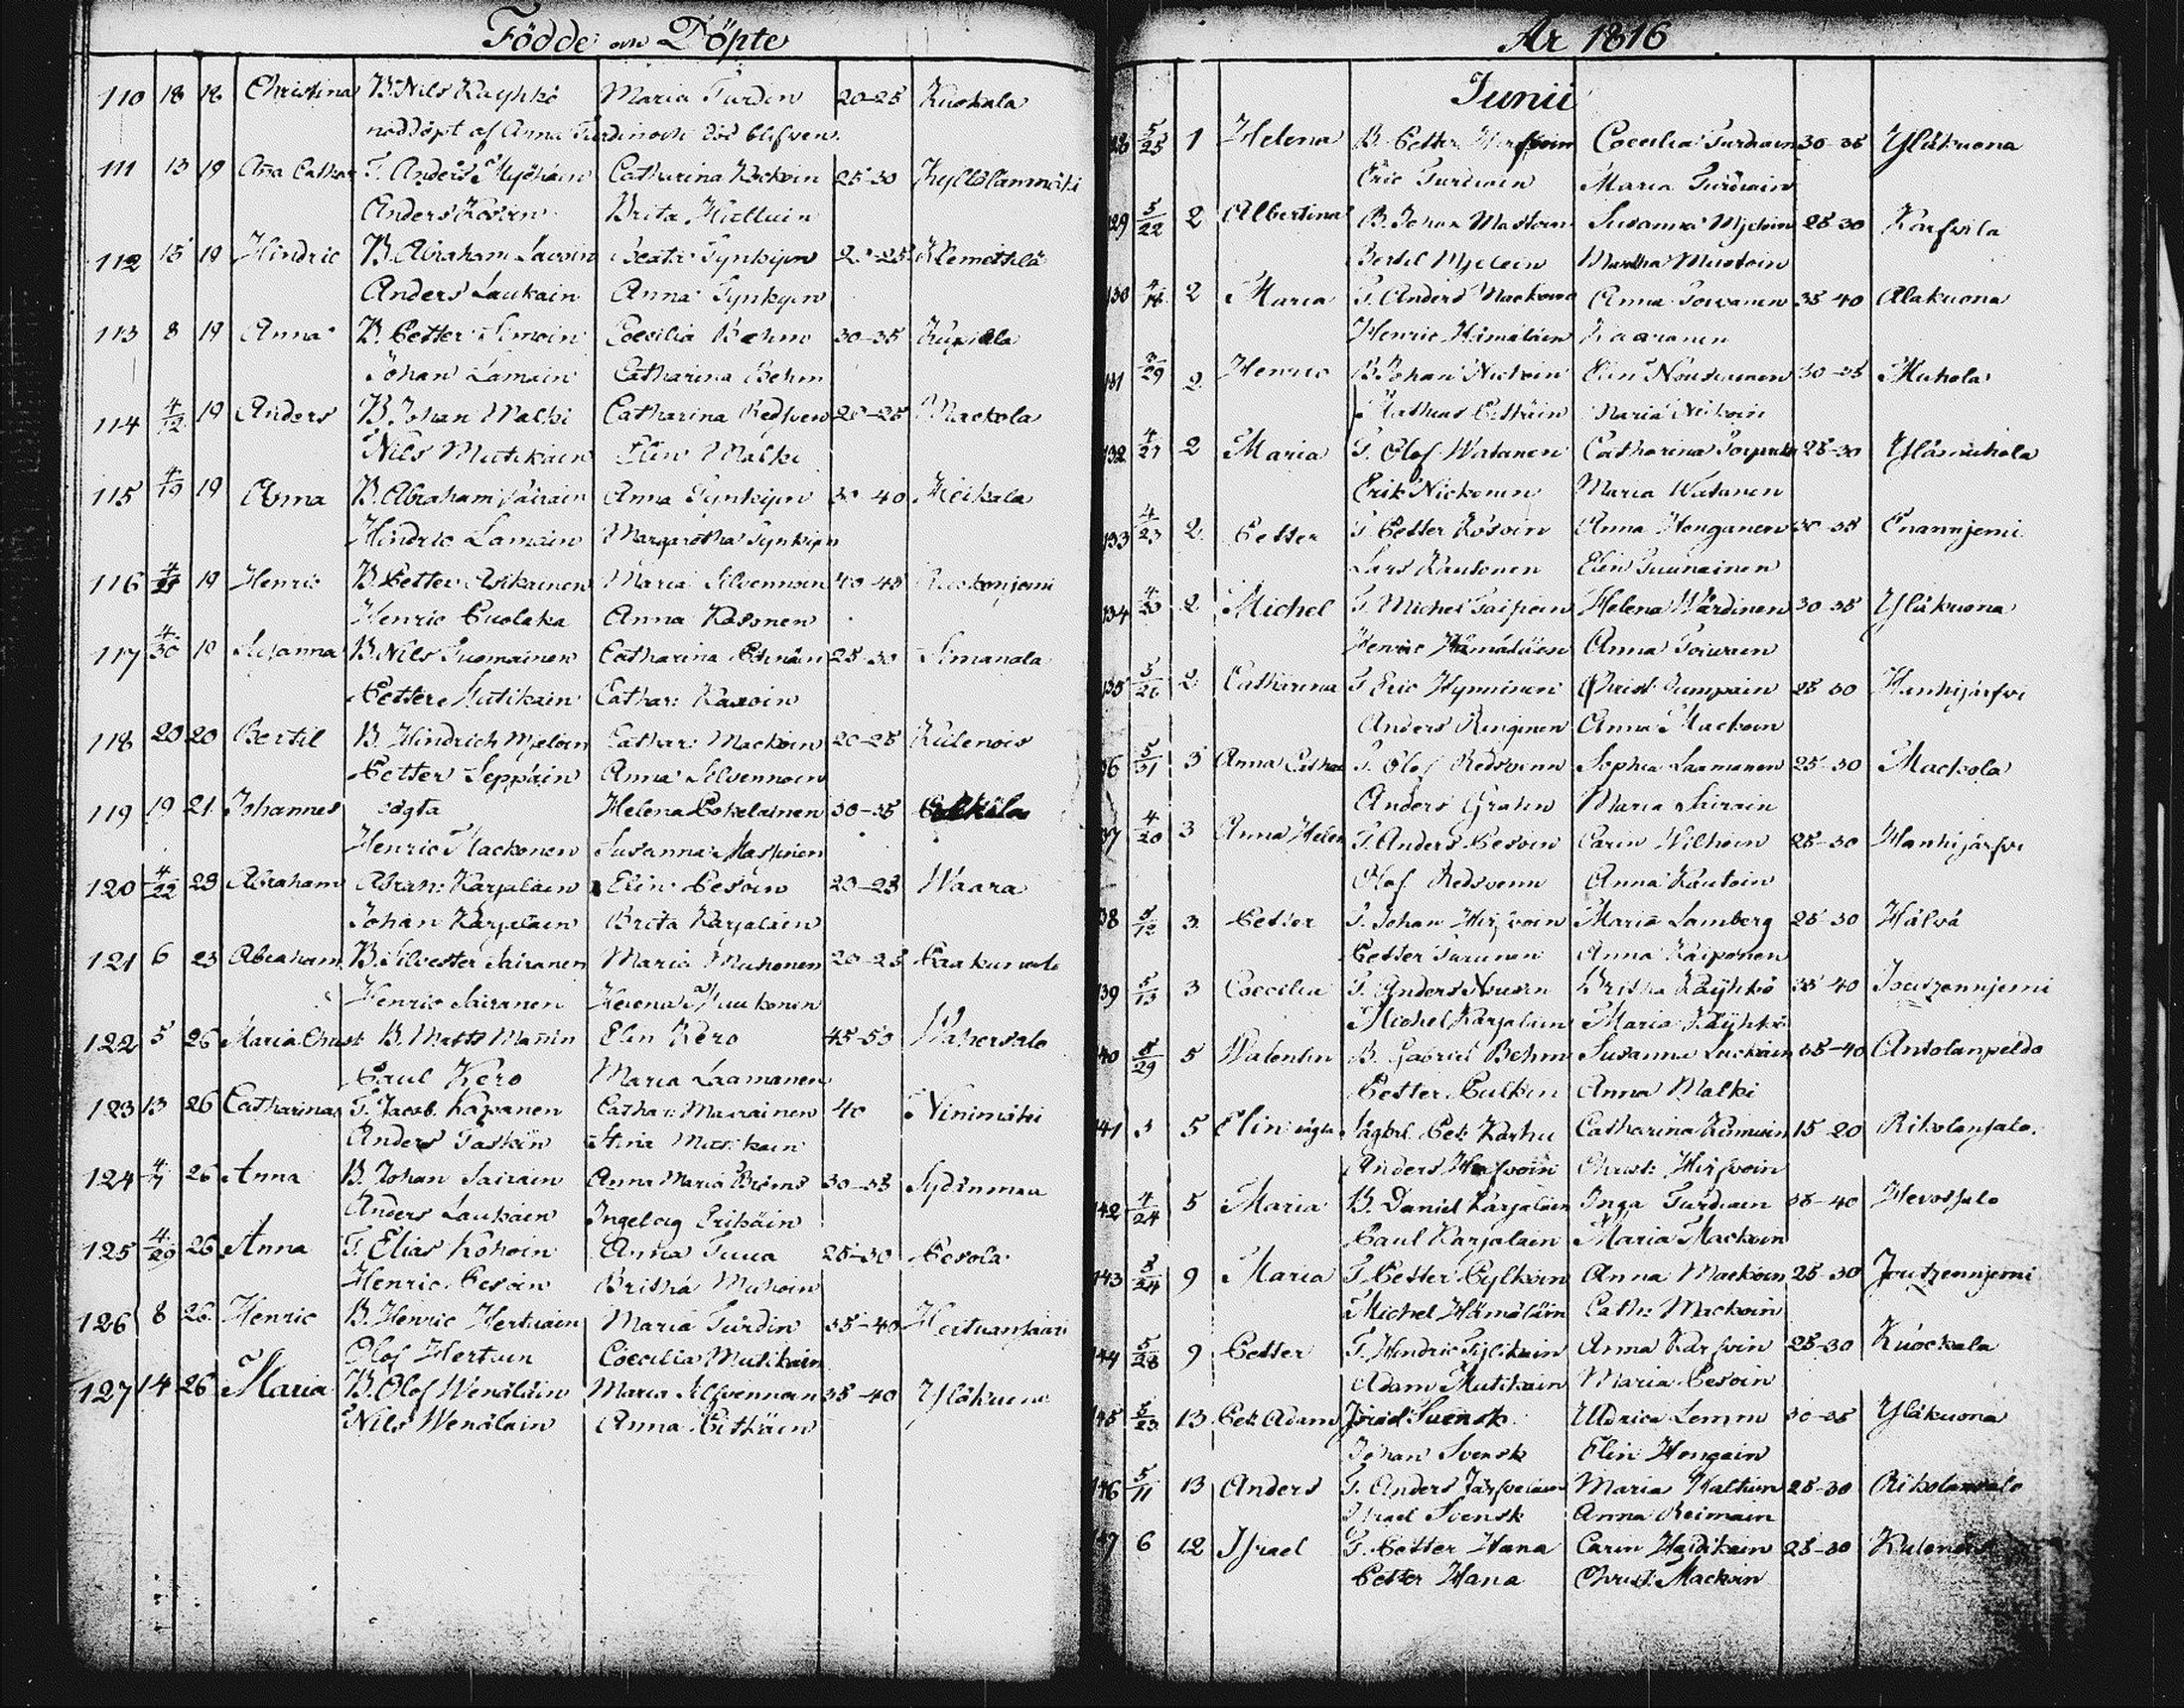 Födde och Döpte
110 18 18 Christina B. Nils Käyhkö Maria Turdin 20-25 Kuokala
nöddöpt af Anna Turdin och död blifven.
111 13 19 Aña Cathar T. Anders Myöhäin Catharina Kockoin 25-30 Kyllölänmäki
Anders Kosoin Brita Hulluin
112 15 19 Hindric B. Abraham Savoin Beata Tynkyin 25 Klemettilä
Anders Laukain Anna Tynkyin
113 8 19 Anna B. Petter Simoin Coecilia Behm 30-35 Kupiala
Johan Lamain Catharina Behm
114 4/12 19 Anders B. Johan Malki Catharina Redsven 20-25 Mackola
Nils Mutikain Elin Malki
115 4/19 19 Anna B. Abraham Sairain Anna Tynkyin 40 Heikala
Hindric Lamain Margaretha Tynkyin
116 19 Henric B. Petter Asikainen Maria Silvennoin 40-45
Henric Puolaka Anna Kosonen
117 4/30 19 Susanna B. Nils Suomainen Catharina 25-30 Simanala
Petter Mutikain Cathar: Kaxoin
118 20 20 Bertil B. Hindrich Mjeloin Cathar: Mackoin 20-25 Kulenois
Petter Seppäin Anna Silvennoin
119 19 21 Johannes oägta Helena Pokelainen 30-35
Henric Mackonen Susanna
120 4/22 23 Abraham Abrah: Karjalain Elin Pesoin 20-23 Waara
Johan Karjalain Brita Karjalain
121 6 23 Abraham B. Silvester Sairanen Maria Muhonen 20-25
Henric Sairanen Helena Muukonen
122 5 26 Maria Christ B. Matts Mañin Elin Kero 45-50 Wahersalo
Paul Kero Maria Laamanen
123 13 26 Catharina T. Jacob Kapanen Cathar: 40 Ninimäki
Anders Taskin Stina Mutikain
124 26 Anna B. Johan Sairain Anna Maria Bröms 30-35 Sydänmaa
Anders Laukain Ingeborg Erikäin
125 4/29 26 Anna T. Elias Kohoin Anna Tuua 25-30 Pesola
Henric Pesoin Britha Muhoin
126 8 26 Henric B. Henric Hertuain Maria Turdin 35-40 Hertuansaari
Olof Hertuin Coecilia Mutikain
127 14 26 Maria B. Olof Wenäläin Maria Silfvennoin 35-40 Yläkuona
Nils Wenälain Anna Pitkäin
Ar 1816
Junii
5/25 1 Helena B. Petter Hirfvoin Coecilia Turdiain 30-35 Yläkuona
Eric Turdiain Maria Turdiain
129 5/22 2 Albertina B. Johan Mustoin Susanna Mjeloin 25-30 Karfvila
Bertil Mjeloin Martha Mustoin
130 2 Maria T. Anders Mackoin Anna Toivanen 35-40 Alakuona
Henric Hämäläin
2 Henric B. Johan Nickoin Elin Nousiainen 30-35 Muhola
Mathias Maria Nickoin
132 2 Maria T. Olof Watanen Catharina 25-30 Ylämuhola
Erik Nickonen Maria Watanen
133 4/23 2 Petter T. Petter Kosoin Anna Honganen 30-35 Enanniemi
Lars Rautonen Elin Tuunainen
134 2 Michel T. Michel Taipein Helena Wärdinen 30-35 Yläkuona
Henric Hämäläin Anna Toivain
135 5/26 2 Catharina T. Eric Hynninen Christ: Tumpäin 25-30 Hanhijärfvi
Anders Ringinen Anna Mackoin
5/31 3 Anna Cathar T. Olof Redsvenn Sophia Laamanen 25-30 Mackola
Anders Grahn Maria Sairain
4/20 3 Anna Helen T. Anders Pesoin Carin Wilhoin 25-30 Hanhijärfvi
Olof Redsvenn Anna Rautoin
5/12 3 Petter T. Johan Hirfvoin Maria Lamberg 25-30 Hälvä
Petter Turunen Anna Kaiponen
5/13 3 Coecilia T. Anders Nousn Britha Käyhkö 35-40 Joutzenniemi
Michel Karjalain Maria Käyhkö
5/29 5 Walentin B. Gabriel Behm Susanna Luckain 35-40 Antolanpeldo
Petter Pulkin Anna Malki
141 3 5 Elin oägta lägkrl. Pet: Karhu Catharina 15-20 Rikolansalo
Anders Hirfvoin Christ: Hirfvoin
142 4/24 5 Maria B. Daniel Karjalain Inga Turdiain 35-40 Hevossalo
Paul Karjalain Maria Mackoin
143 5/24 9 Maria T. Petter Pylkoin Anna Mackoin 25-30 Joutzenniemi
Michel Hämäläin Cath: Mackoin
144 5/28 9 Petter T. Hindric Tylikain Anna Karfvin 25-30 Kuockala
Adam Mutikain Maria Pesoin
145 5/23 13 Pet: Adam Israel Svensk Uldrica Lemm 30-35 Yläkuona
Johan Svensk Elin Hongain
146 5/11 13 Anders T. Anders Järfveläin Maria Kaltiin 25-30 Rikolansalo
Israel Svensk Anna Reimain
147 6 12 Israel T. Petter Hana Carin Haidikain 25-30 Kulenois
Petter Hana Christ: Mackoin